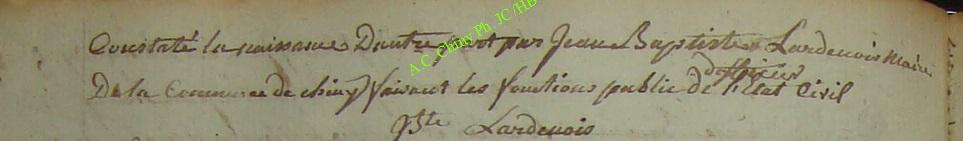 Constaté la naissance D'autre part par Jean Baptiste Lardenois Maire
d'officier
De la Commune de chiny faisant les fonctions public de l'Etat Civil
JBte Lardenois
A.C. Chiny Ph. JC/HB